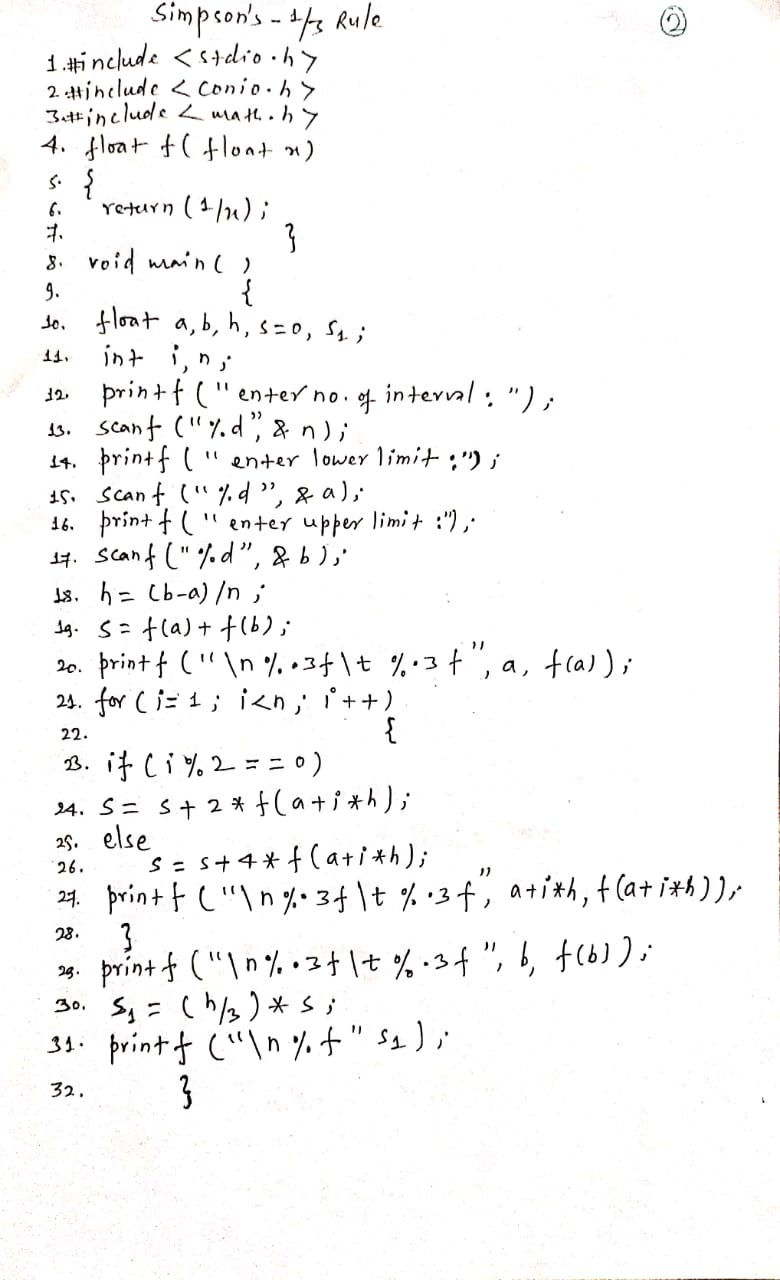 Simpson's - 1/3 Rule
2
1. #include <stdio.h>
2. #include <conio.h>
3. #include <math.h>
4. float f( float x)
5. {
6. return (1/x);
7. }
8. void main ( )
9. {
10. float a, b, h, s=0, s1;
11. int i, n;
12. printf ("enter no. of interval : ");
13. scanf ("%d", & n);
14. printf ("enter lower limit :");
15. scanf ("%d", & a);
16. printf ("enter upper limit :");
17. scanf ("%d", & b);
18. h = (b-a)/n ;
19. s = f(a) + f(b);
20. printf ("\n %.3f\t %.3f", a, f(a));
21. for (i=1; i<n; i++)
22. {
23. if (i%2 == 0)
24. s = s + 2 * f(a+i*h);
25. else
26. s = s+4* f(a+i*h);
27. printf ("\n %.3f\t %.3f", a+i*h, f(a+i*h));
28. }
29. printf ("\n %.3f\t %.3f", b, f(b));
30. s1 = (h/3) * s ;
31. printf ("\n %f" s1);
32. }